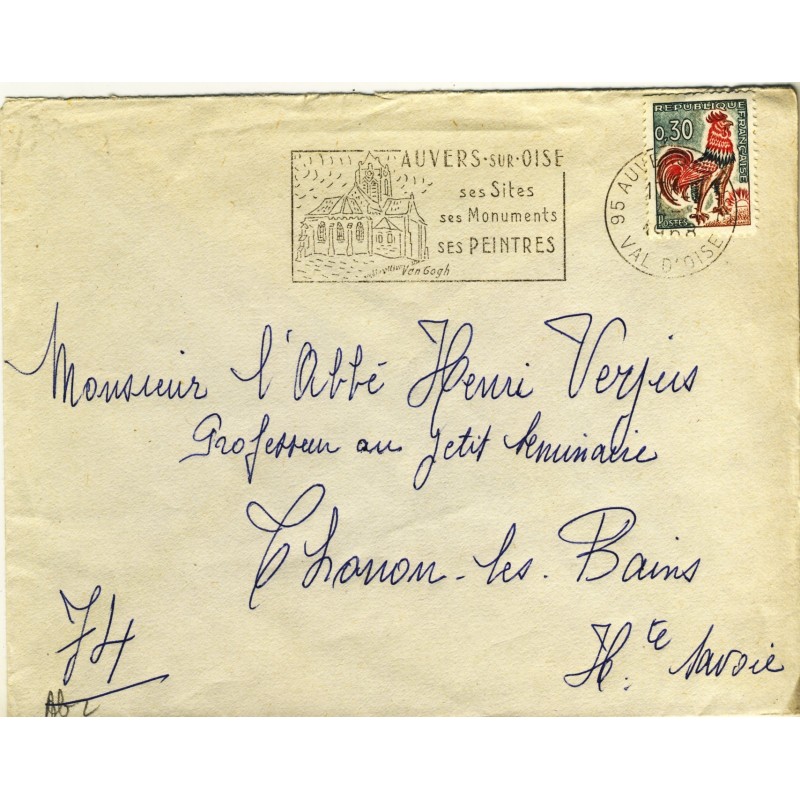 REPUBLIQUE FRANÇAISE
0,30
POSTES
AUVERS-SUR-OISE
ses Sites
ses Monuments
ses PEINTRES
Van Gogh
95 AUVE
1968
VAL D'OISE
Monsieur l'Abbé Henri Verjus
Professeur au Petit Seminaire
Thonon-les-Bains
74
Hte Savoie